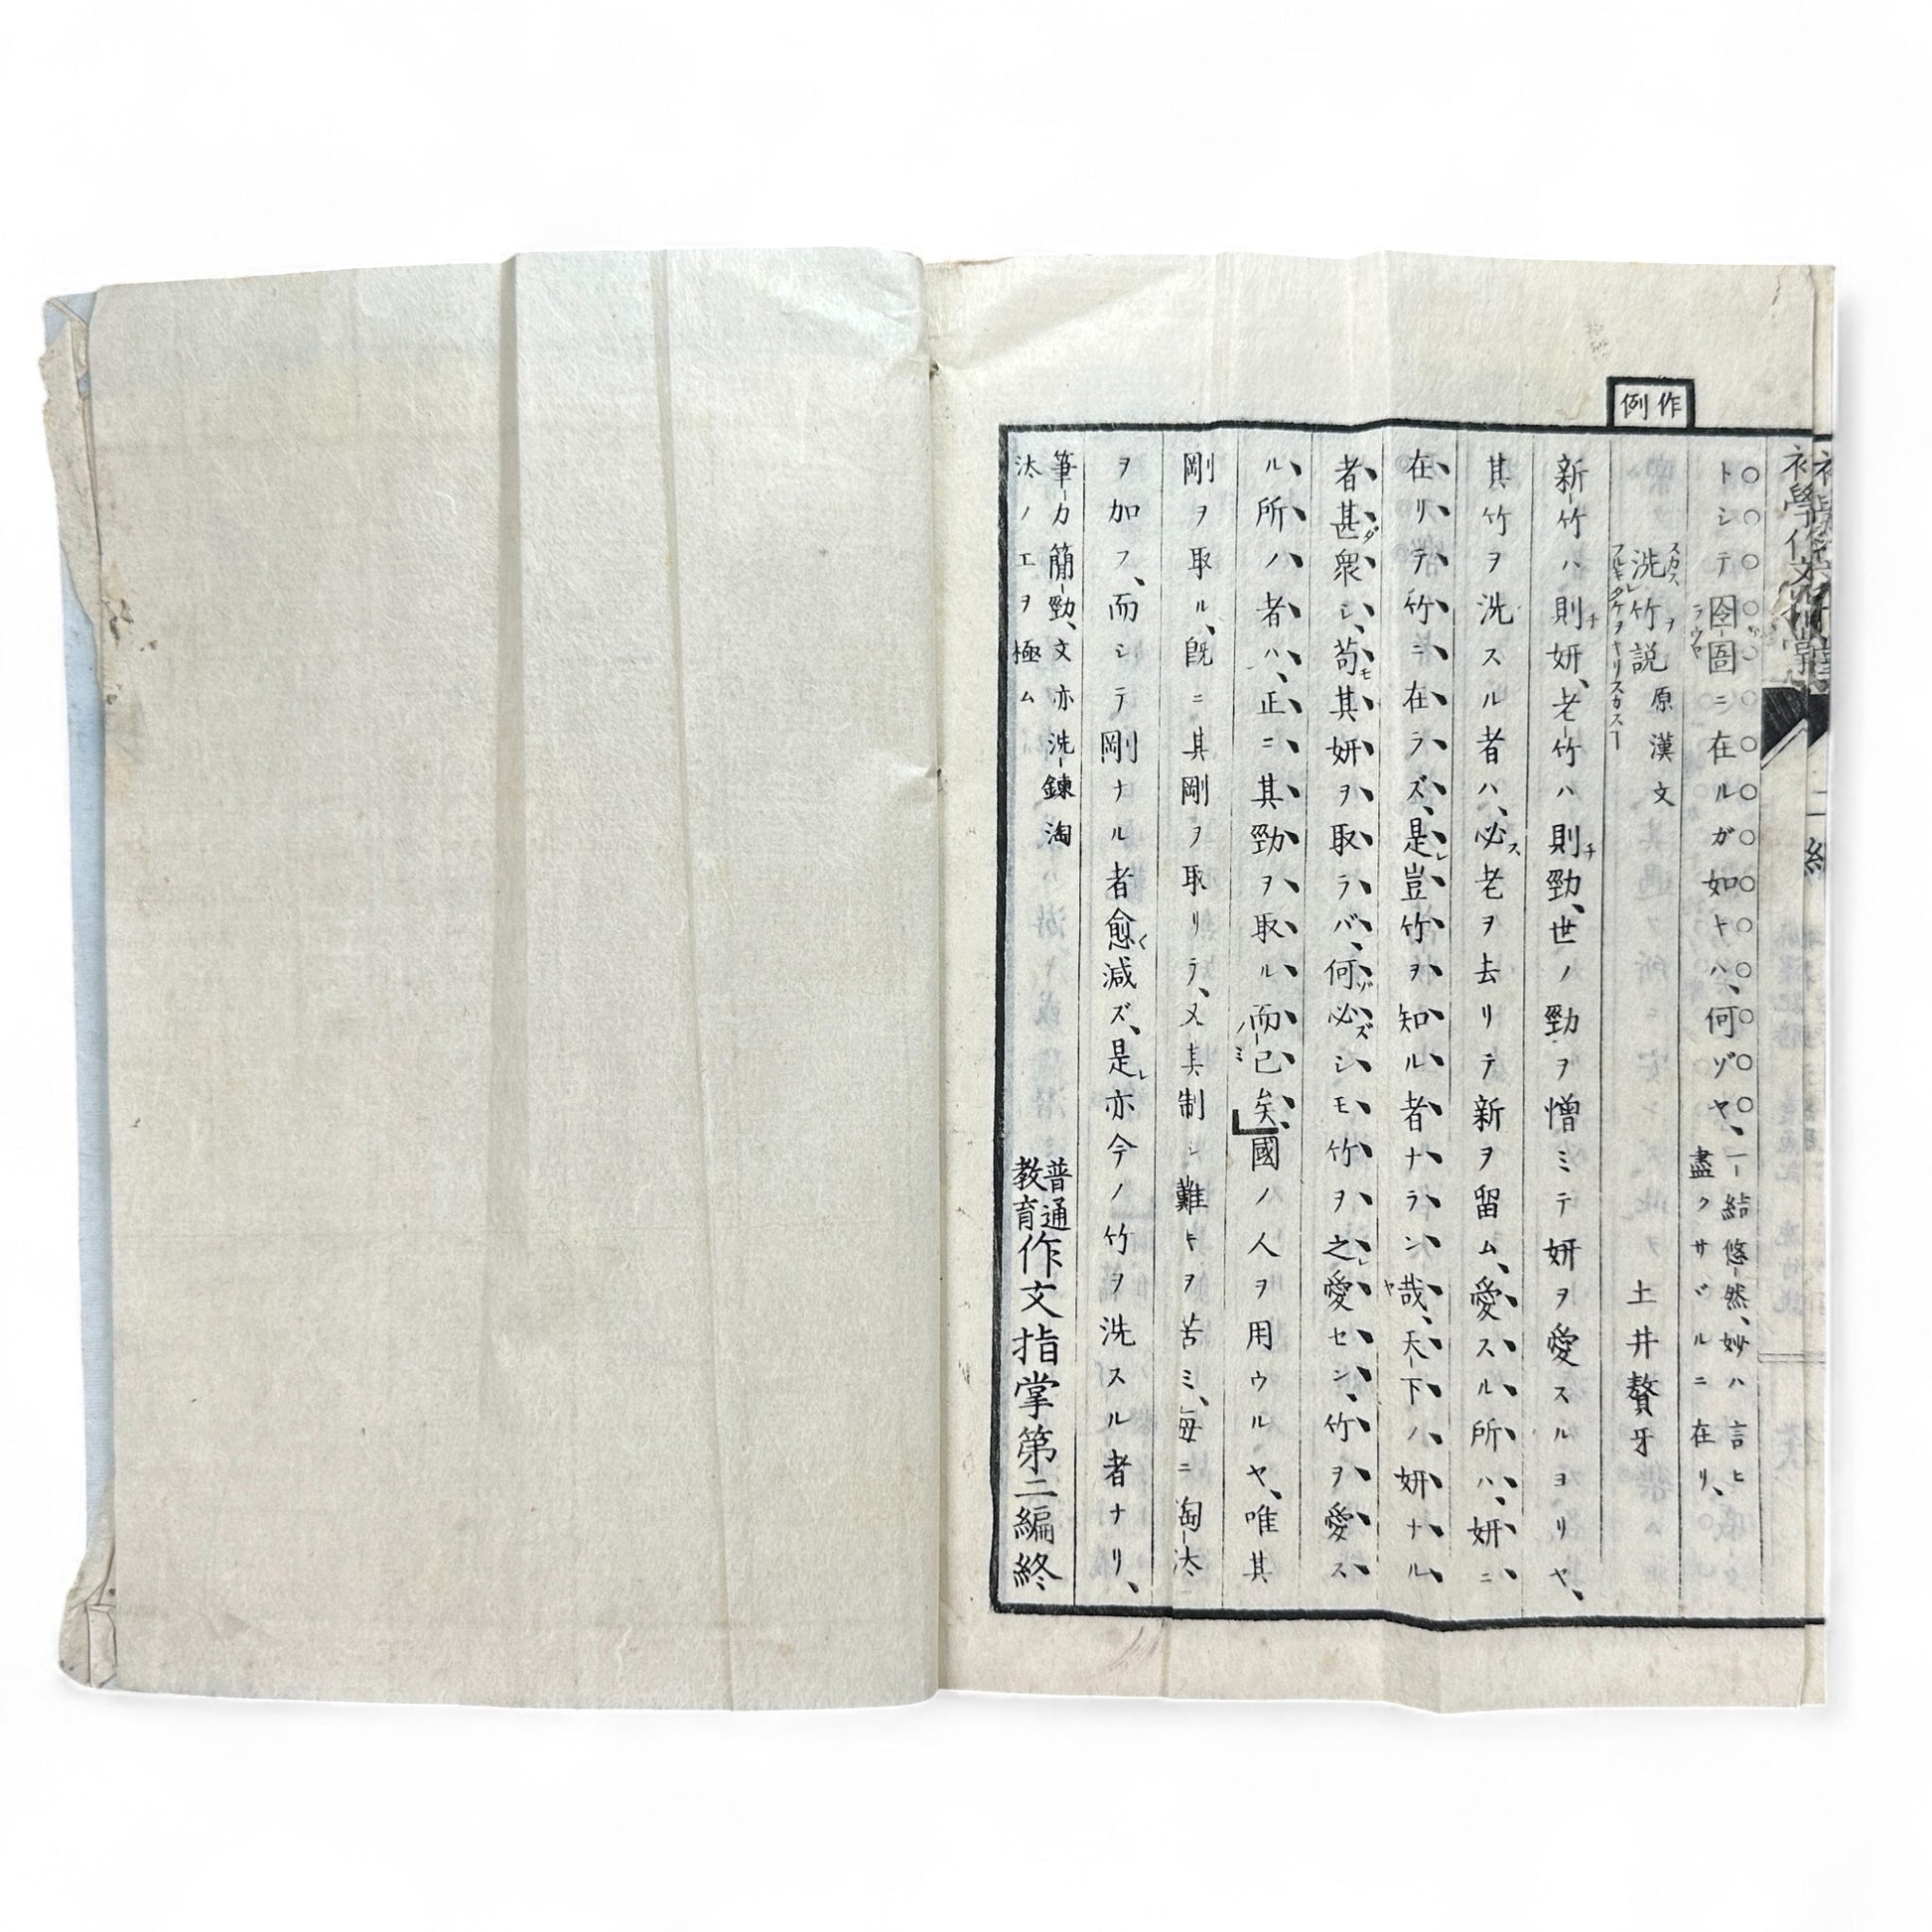 作例
トシテ囹圄ニ在ルガ如キハ、何ゾヤ、
一結悠然、妙ハ言ヒ
盡クサヾルニ在リ、
洗竹説 原漢文 土井贅牙
新竹ハ則チ妍、老竹ハ則チ勁、世ノ勁ヲ憎ミテ妍ヲ愛スルヨリヤ、
其竹ヲ洗スル者ハ、必ス老ヲ去リテ新ヲ留ム、愛スル所ハ、妍ニ
在リテ竹ニ在ラズ、是レ豈竹ヲ知ル者ナランヤ哉、天下ノ妍ナル
者甚ダ衆シ、苟モ其妍ヲ取ラバ、何ゾ必ズシモ竹ヲ之レ愛セン、竹ヲ愛ス
ル所ノ者ハ、正ニ其勁ヲ取ル而已矣、國ノ人ヲ用ウルヤ、唯其
剛ヲ取ル、既ニ其剛ヲ取リテ、又其制シ難キヲ苦ミ、毎ニ淘汰
ヲ加フ、而シテ剛ナル者愈く減ズ、是レ亦今ノ竹ヲ洗スル者ナリ、
筆力簡勁、文亦洗鍊淘
汰ノ工ヲ極ム
普通教育作文指掌第二編終